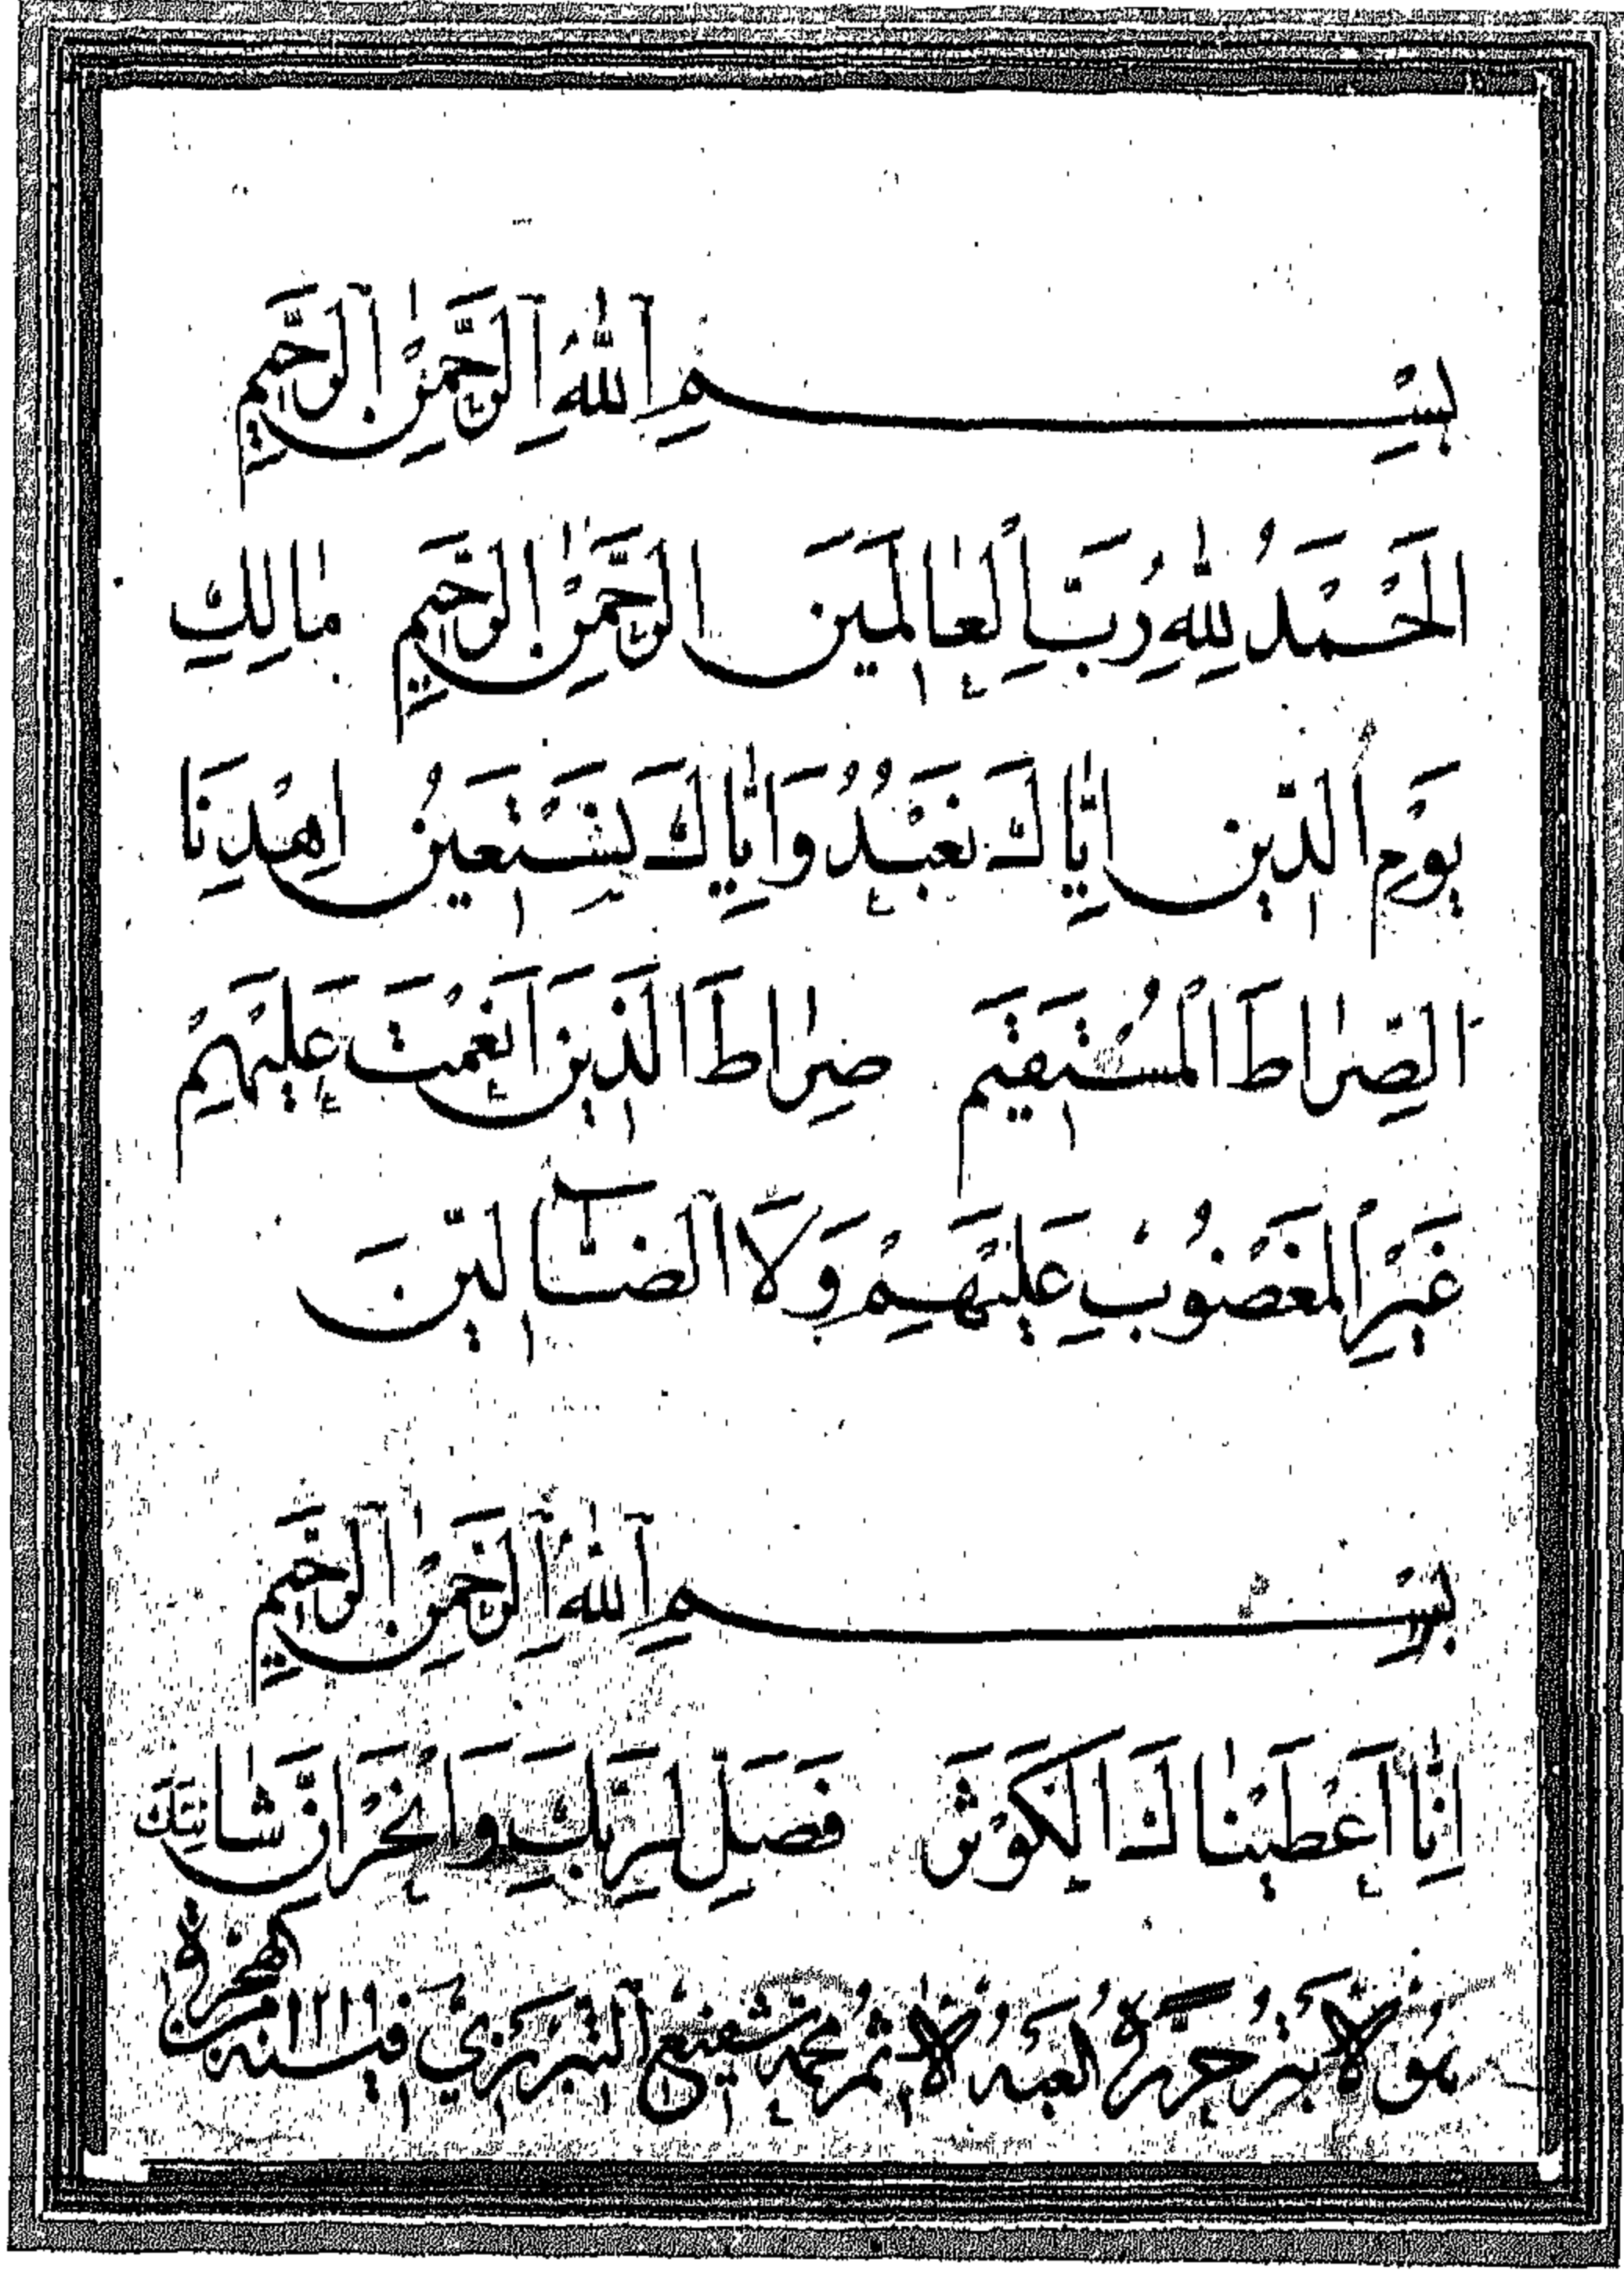 بِسْمِ اللهِ الرَّحْمٰنِ الرَّحِيمِ
الْحَمْدُ لِلّٰهِ رَبِّ الْعٰالَمِينَ الرَّحْمٰنِ الرَّحِيمِ مٰالِكِ
يَوْمِ الدِّينِ إِيّٰاكَ نَعْبُدُ وَإِيّٰاكَ نَسْتَعِينُ اهْدِنَا
الصِّرٰاطَ الْمُسْتَقِيمَ صِرٰاطَ الَّذِينَ أَنْعَمْتَ عَلَيْهِمْ
غَيْرِ الْمَغْضُوبِ عَلَيْهِمْ وَلَا الضَّالِّينَ
بِسْمِ اللهِ الرَّحْمٰنِ الرَّحِيمِ
إِنّٰا أَعْطَيْنٰاكَ الْكَوْثَرَ فَصَلِّ لِرَبِّكَ وَانْحَرْ إِنَّ شٰانِئَكَ
هُوَ الْأَبْتَرُ حَرَّرَهُ الْعَبْدُ الْآثِمُ مُحَمَّد شَفِيع التَّبْرِيزِي فِي سَنَة ١٢١٩ مِنَ الْهِجْرَة